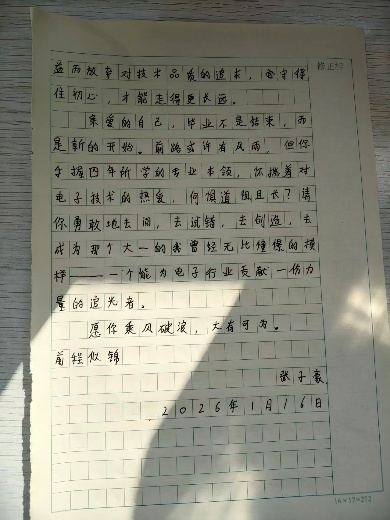 益而放弃对技术品质的追求，会守得
住初心，才能走得更长远。
亲爱的自己，毕业不是结束，而
是新的开始。前路或许有风雨，但你
手握四年所学的专业本领，怀揣着对
电子技术的热爱，何惧道阻且长？请
你勇敢地去闯，去试错，去创造，去
成为那个大一的我曾经无比憧憬的模
样——一个能为电子行业贡献一份力
量的追光者。
愿你乘风破浪，大有可为。
前程似锦
张子豪
2026年1月16日
修正栏